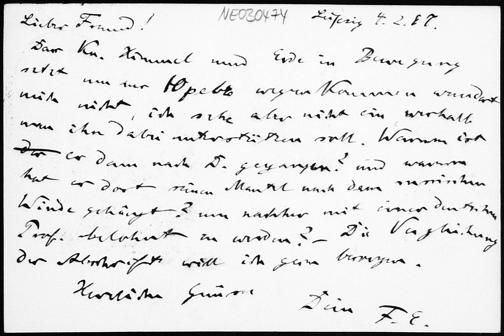 Lieber Freund!
NE030474
Leipzig 4.2.87.
Dass Kn. Himmel und Erde in Bewegung
setzt um nur Юрьевъ wegzukommen wundert
mich nicht, ich sehe aber nicht ein weshalb
man ihn dabei unterstützen soll. Warum ist
er denn nach D. gegangen? und warum
hat er dort seinen Mantel nach dem russischen
Winde gehängt? um nachher mit einer deutschen
Prof. belohnt zu werden? – Die Vergleichung
der Abschrift will ich gern besorgen.
Herzliche Grüsse
Dein F. E.